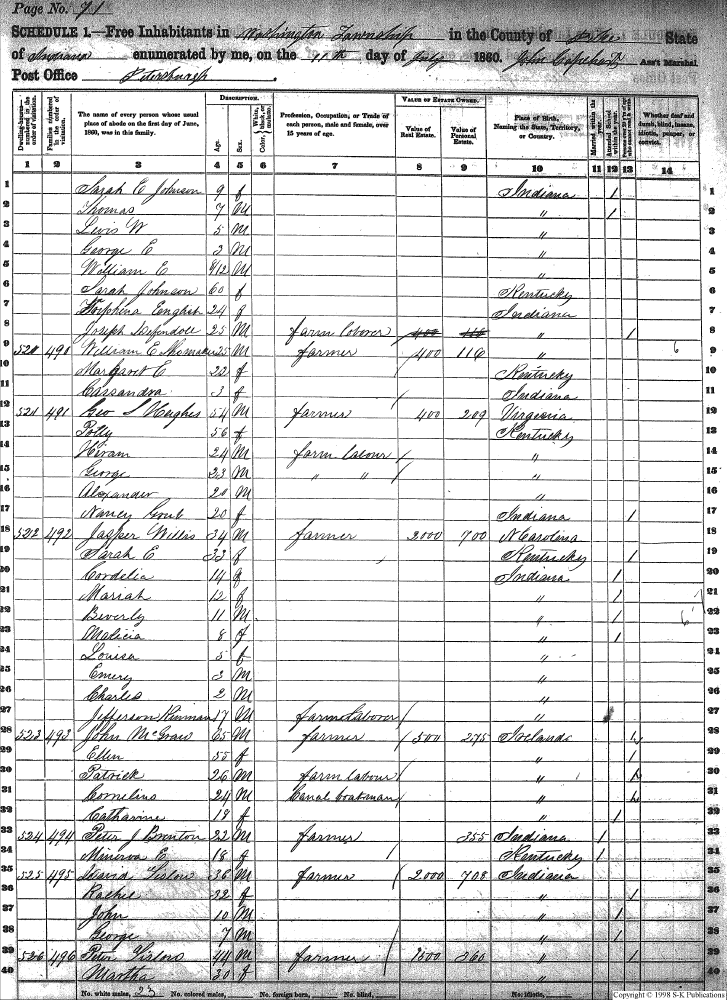 Page No. 71
SCHEDULE 1.—Free Inhabitants in Washington Township in the County of Pike State
of Indiana enumerated by me, on the 11th day of July 1860. John Capehart Ass't Marshal.
Post Office Petersburgh.
Dwelling-houses—numbered in the order of visitation.
Families numbered in the order of visitation.
The name of every person whose usual place of abode on the first day of June, 1860, was in this family.
DESCRIPTION.
Age.
Sex.
Color, White, black, or mulatto.
Profession, Occupation, or Trade of each person, male and female, over 15 years of age.
VALUE OF ESTATE OWNED.
Value of Real Estate.
Value of Personal Estate.
Place of Birth, Naming the State, Territory, or Country.
Married within the year.
Attended School within the year.
Whether deaf and dumb, blind, insane, idiotic, pauper, or convict.
1 2 3 4 5 6 7 8 9 10 11 12 13 14
1 Sarah E Johnson 9 f Indiana / 1
2 Thomas 7 M " / 2
3 Lewis W 5 M " 3
4 George E 2 M " 4
5 William E 9/12 M " 5
6 Sarah Johnson 60 f Kentucky 6
7 English 24 f Indiana 7
8 Joseph 25 M farm laborer 400 116 " / 8
9 520 490 William E 25 M farmer 400 116 " 9
10 Margaret E 22 f Kentucky 10
11 Cassandra 3 f Indiana 11
12 521 491 Geo S Hughes 54 M farmer 400 209 Virginia 12
13 Polly 56 f Kentucky 13
14 Hiram 24 M farm labour " 14
15 George 23 M " " " 15
16 Alexander 20 M " 16
17 Nancy 20 f Indiana / 17
18 522 492 Jasper Willis 34 M farmer 2000 700 N Carolina 18
19 Sarah E 33 f Kentucky / 19
20 Cordelia 14 f Indiana / 20
21 Mariah 12 f " / 21
22 Beverly 11 M " / 22
23 Malicia 8 f " / 23
24 Louisa 5 f " 24
25 Emery 3 M " 25
26 Charles 2 M " 26
27 Jefferson Kinman 17 M farm laborer " 27
28 523 493 John McGraw 65 M farmer 500 275 Ireland 28
29 Ellen 55 f " / 29
30 Patrick 26 M farm labour " 30
31 Cornelius 24 M Canal boatman " 31
32 Catharine 18 f " / 32
33 524 494 Peter J Brenton 22 M farmer 355 Indiana / 33
34 Minerva E 18 f Kentucky / 34
35 525 495 David 36 M farmer 2000 708 Indiana 35
36 Rachel 32 f " / 36
37 John 10 M " / 37
38 George 7 M " / 38
39 526 496 Peter 44 M farmer 1500 360 " / 39
40 Martha 30 f " 40
No. white males, 23 No. colored males, No. foreign born, No. blind, No. idiotic,
Copyright © 1998 S-K Publications